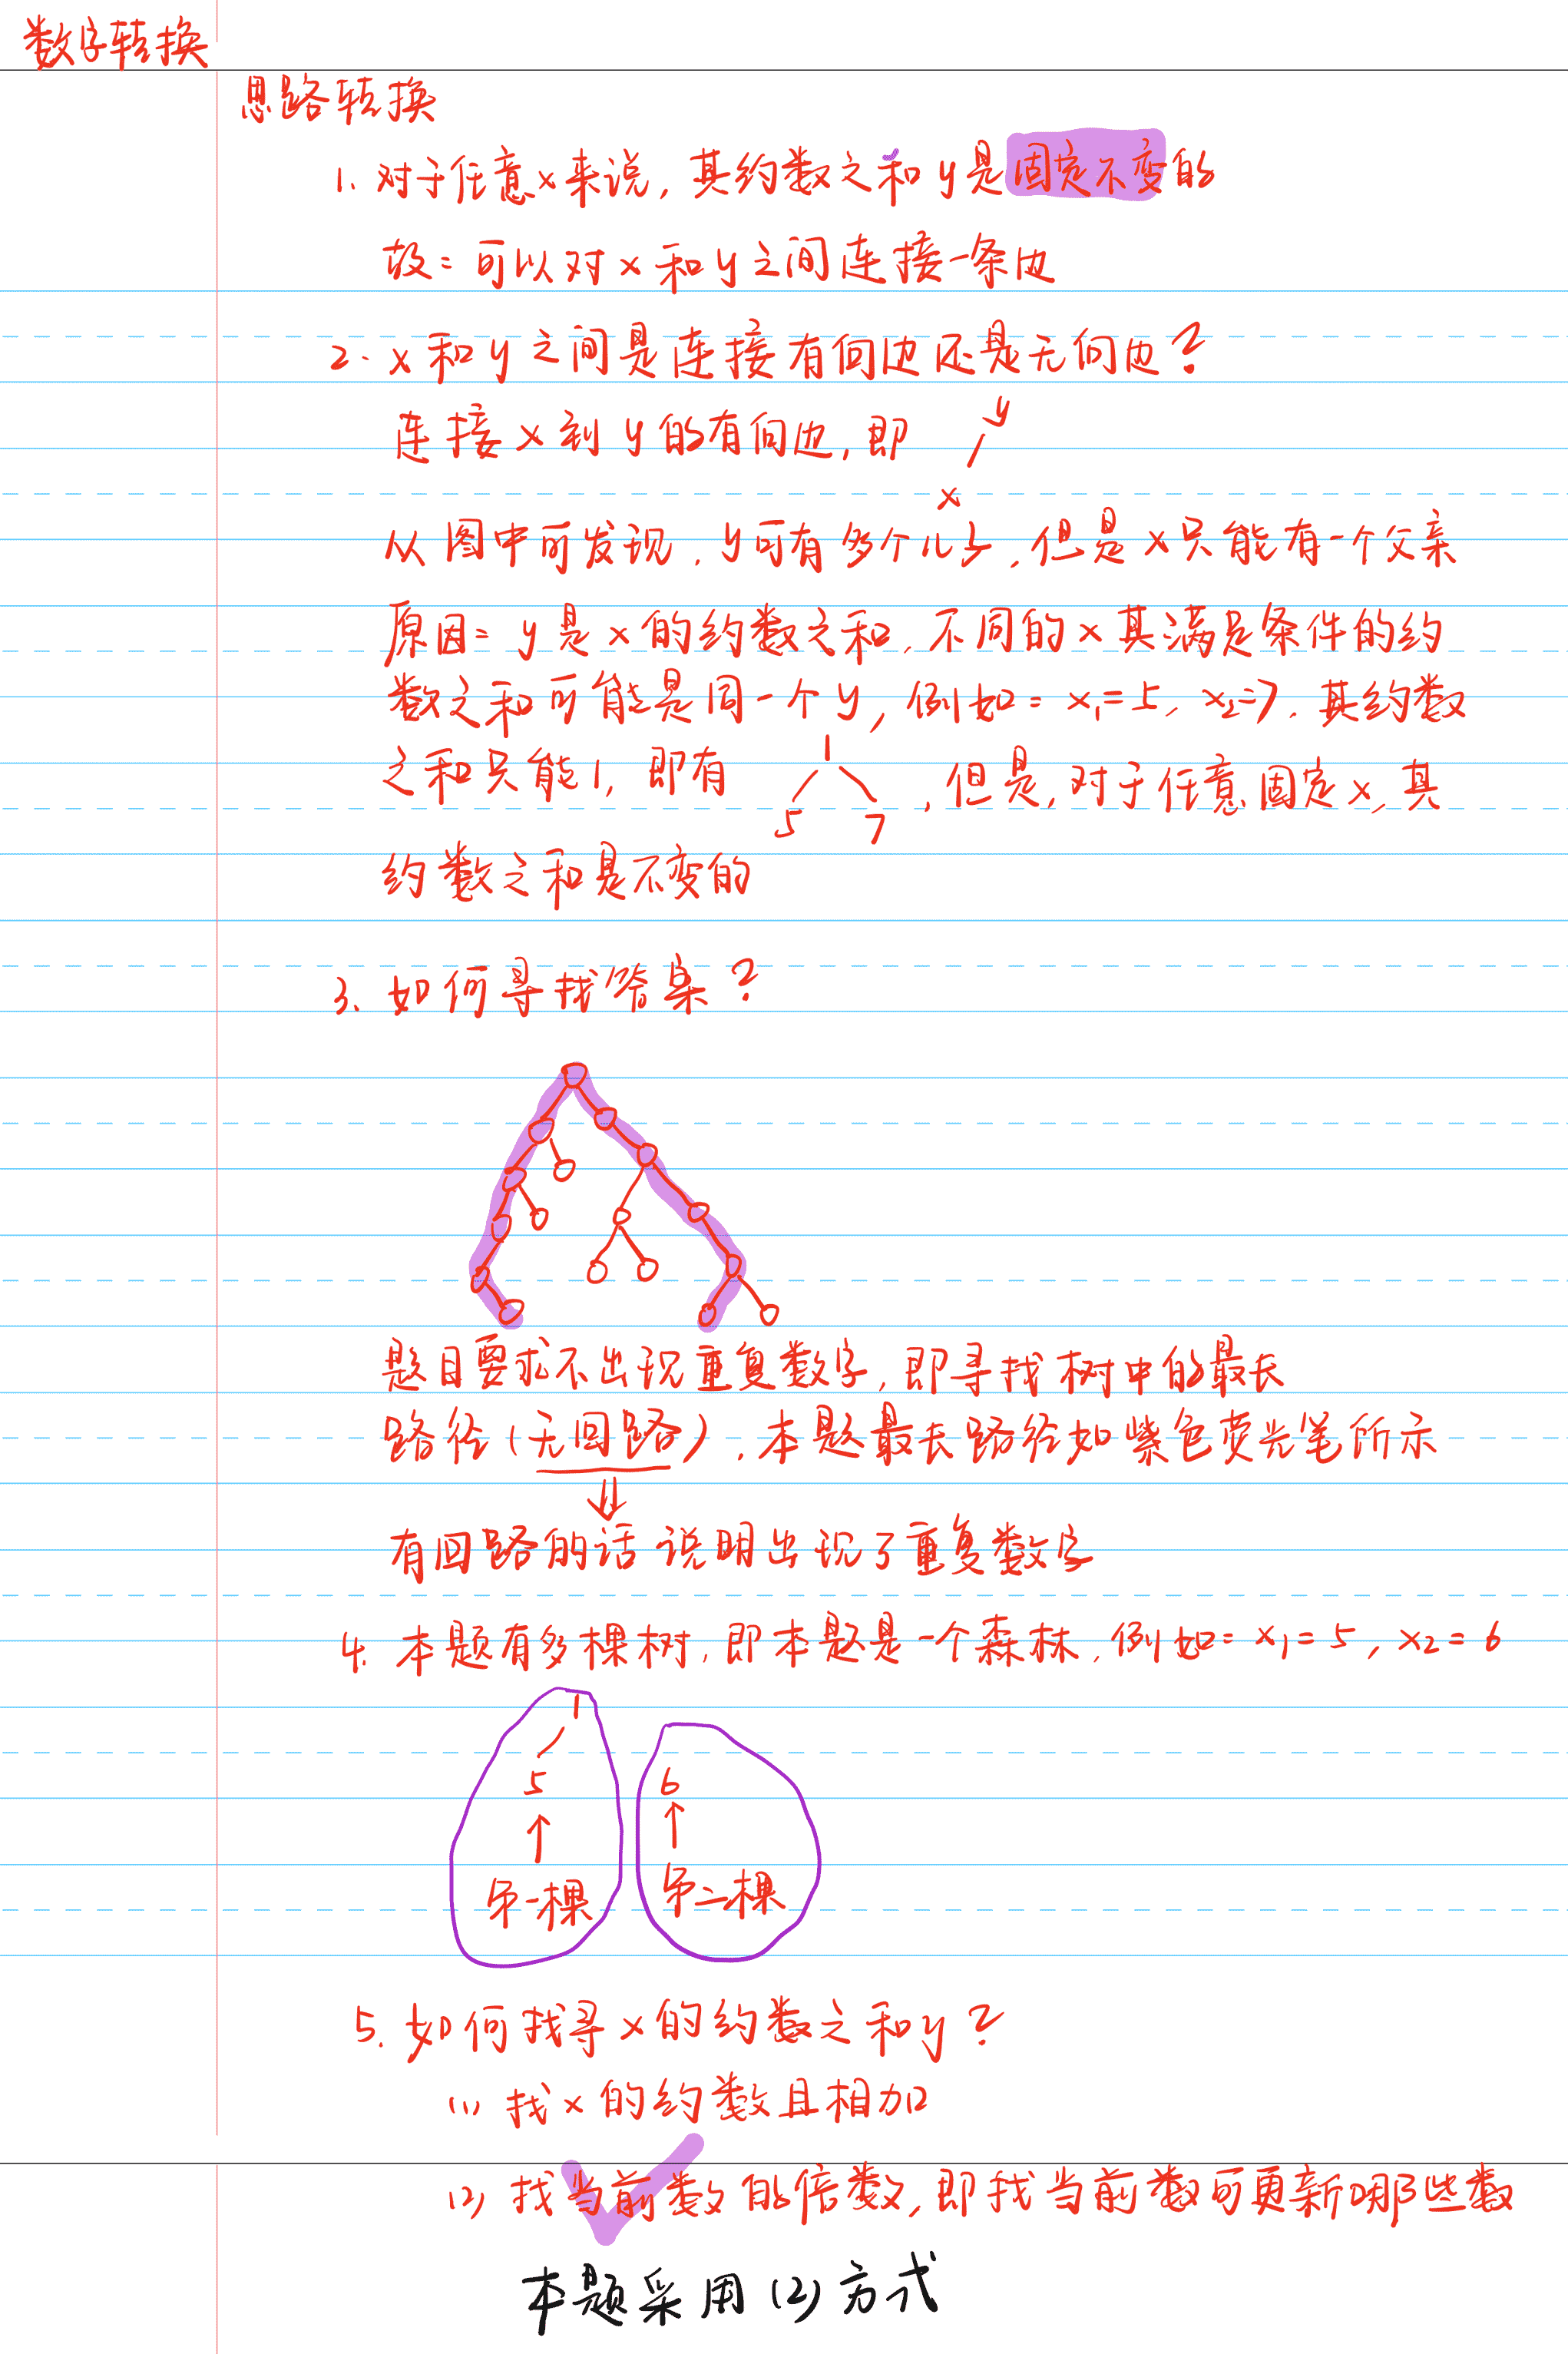 数字转换
思路转换
1. 对于任意x来说, 其约数之和y是固定不变的
故: 可以对x和y之间连接一条边
2. x和y之间是连接有向边还是无向边?
连接x到y的有向边, 即
y
x
从图中可发现, y可有多个儿子, 但是x只能有一个父亲
原因: y是x的约数之和, 不同的x其满足条件的约
数之和可能是同一个y, 例如: x₁=5, x₂=7, 其约数
之和只能1, 即有
1
5 7
, 但是, 对于任意固定x, 其
约数之和是不变的
3. 如何寻找答案?
题目要求不出现重复数字, 即寻找树中的最长
路径(无回路), 本题最长路径如紫色荧光笔所示
⇓
有回路的话说明出现了重复数字
4. 本题有多棵树, 即本题是一个森林, 例如: x₁=5, x₂=6
1
5
↑
第一棵
6
↑
第二棵
5. 如何找寻x的约数之和y?
(1) 找x的约数且相加
(2) 找当前数的倍数, 即找当前数可更新哪些数
本题采用(2)方式